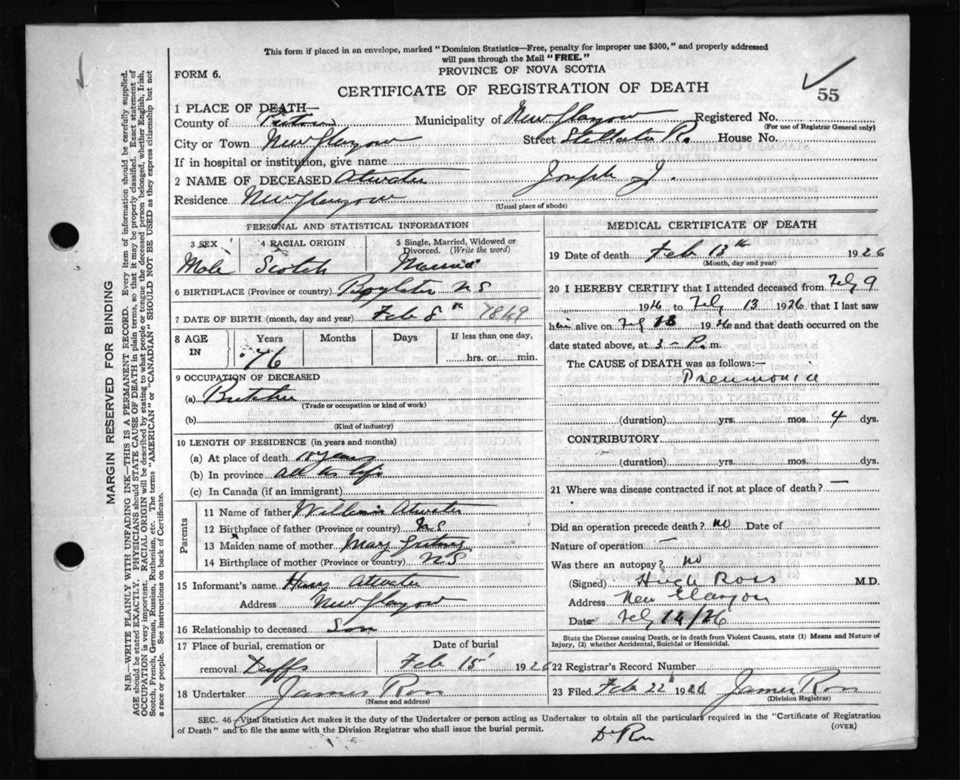 This form if placed in an envelope, marked "Dominion Statistics—Free, penalty for improper use $300," and properly addressed
will pass through the Mail "FREE."
FORM 6.
PROVINCE OF NOVA SCOTIA
CERTIFICATE OF REGISTRATION OF DEATH
55
1 PLACE OF DEATH—
County of Pictou Municipality of New Glasgow Registered No.
(For use of Registrar General only)
City or Town New Glasgow Street Stellarton Rd House No.
If in hospital or institution, give name
2 NAME OF DECEASED Atwater Joseph J.
Residence New Glasgow
(Usual place of abode)
PERSONAL AND STATISTICAL INFORMATION
3 SEX 4 RACIAL ORIGIN 5 Single, Married, Widowed or Divorced. (Write the word)
Male Scotch Married
6 BIRTHPLACE (Province or country) Boylston N S
7 DATE OF BIRTH (month, day and year) Feb 8th 1849
8 AGE IN Years Months Days If less than one day,
76 hrs. or min.
9 OCCUPATION OF DECEASED
(a) Butcher
(Trade or occupation or kind of work)
(b)
(Kind of industry)
10 LENGTH OF RESIDENCE (in years and months)
(a) At place of death 10 years
(b) In province all his life
(c) In Canada (if an immigrant)
Parents
11 Name of father William Atwater
12 Birthplace of father (Province or country) N S
13 Maiden name of mother Mary
14 Birthplace of mother (Province or country) N S
15 Informant's name Harry Atwater
Address New Glasgow
16 Relationship to deceased Son
17 Place of burial, cremation or removal Duffs
Date of burial Feb 15 1926
18 Undertaker James Ross
(Name and address)
MEDICAL CERTIFICATE OF DEATH
19 Date of death Feb 13th 1926
(Month, day and year)
20 I HEREBY CERTIFY that I attended deceased from Feby 9
1926 to Feby 13 1926 that I last saw
him alive on Feby 13 1926 and that death occurred on
date stated above, at 3 - P. m.
The CAUSE OF DEATH was as follows:—
Pneumonia
(duration) yrs. mos. 4 dys.
CONTRIBUTORY
(duration) yrs. mos. dys.
21 Where was disease contracted if not at place of death? —
Did an operation precede death? no Date of
Nature of operation —
Was there an autopsy? no
(Signed) Hugh Ross M.D.
Address New Glasgow
Date Feby 14/26
State the Disease causing Death, or in death from Violent Causes, state (1) Means and Nature of
Injury, (2) whether Accidental, Suicidal or Homicidal.
22 Registrar's Record Number
23 Filed Feb 22 1926 James Ross
(Division Registrar)
SEC. 46—Vital Statistics Act makes it the duty of the Undertaker or person acting as Undertaker to obtain all the particulars required in the "Certificate of Registration
of Death" and to file the same with the Division Registrar who shall issue the burial permit. (OVER)
Dr Ross
MARGIN RESERVED FOR BINDING
N.B.—WRITE PLAINLY WITH UNFADING INK—THIS IS A PERMANENT RECORD. Every item of information should be carefully supplied.
AGE should be stated EXACTLY. PHYSICIANS should STATE CAUSE OF DEATH in plain terms, so that it may be properly classified. Exact statement of
OCCUPATION is very important. RACIAL ORIGIN will be described by stating to what people or tongue the deceased person belonged, whether English, Irish,
Scotch, French, German, Russian, Ruthenian, etc. The terms "AMERICAN" or "CANADIAN" SHOULD NOT BE USED as they express citizenship but not
a race or people. See instructions on back of Certificate.